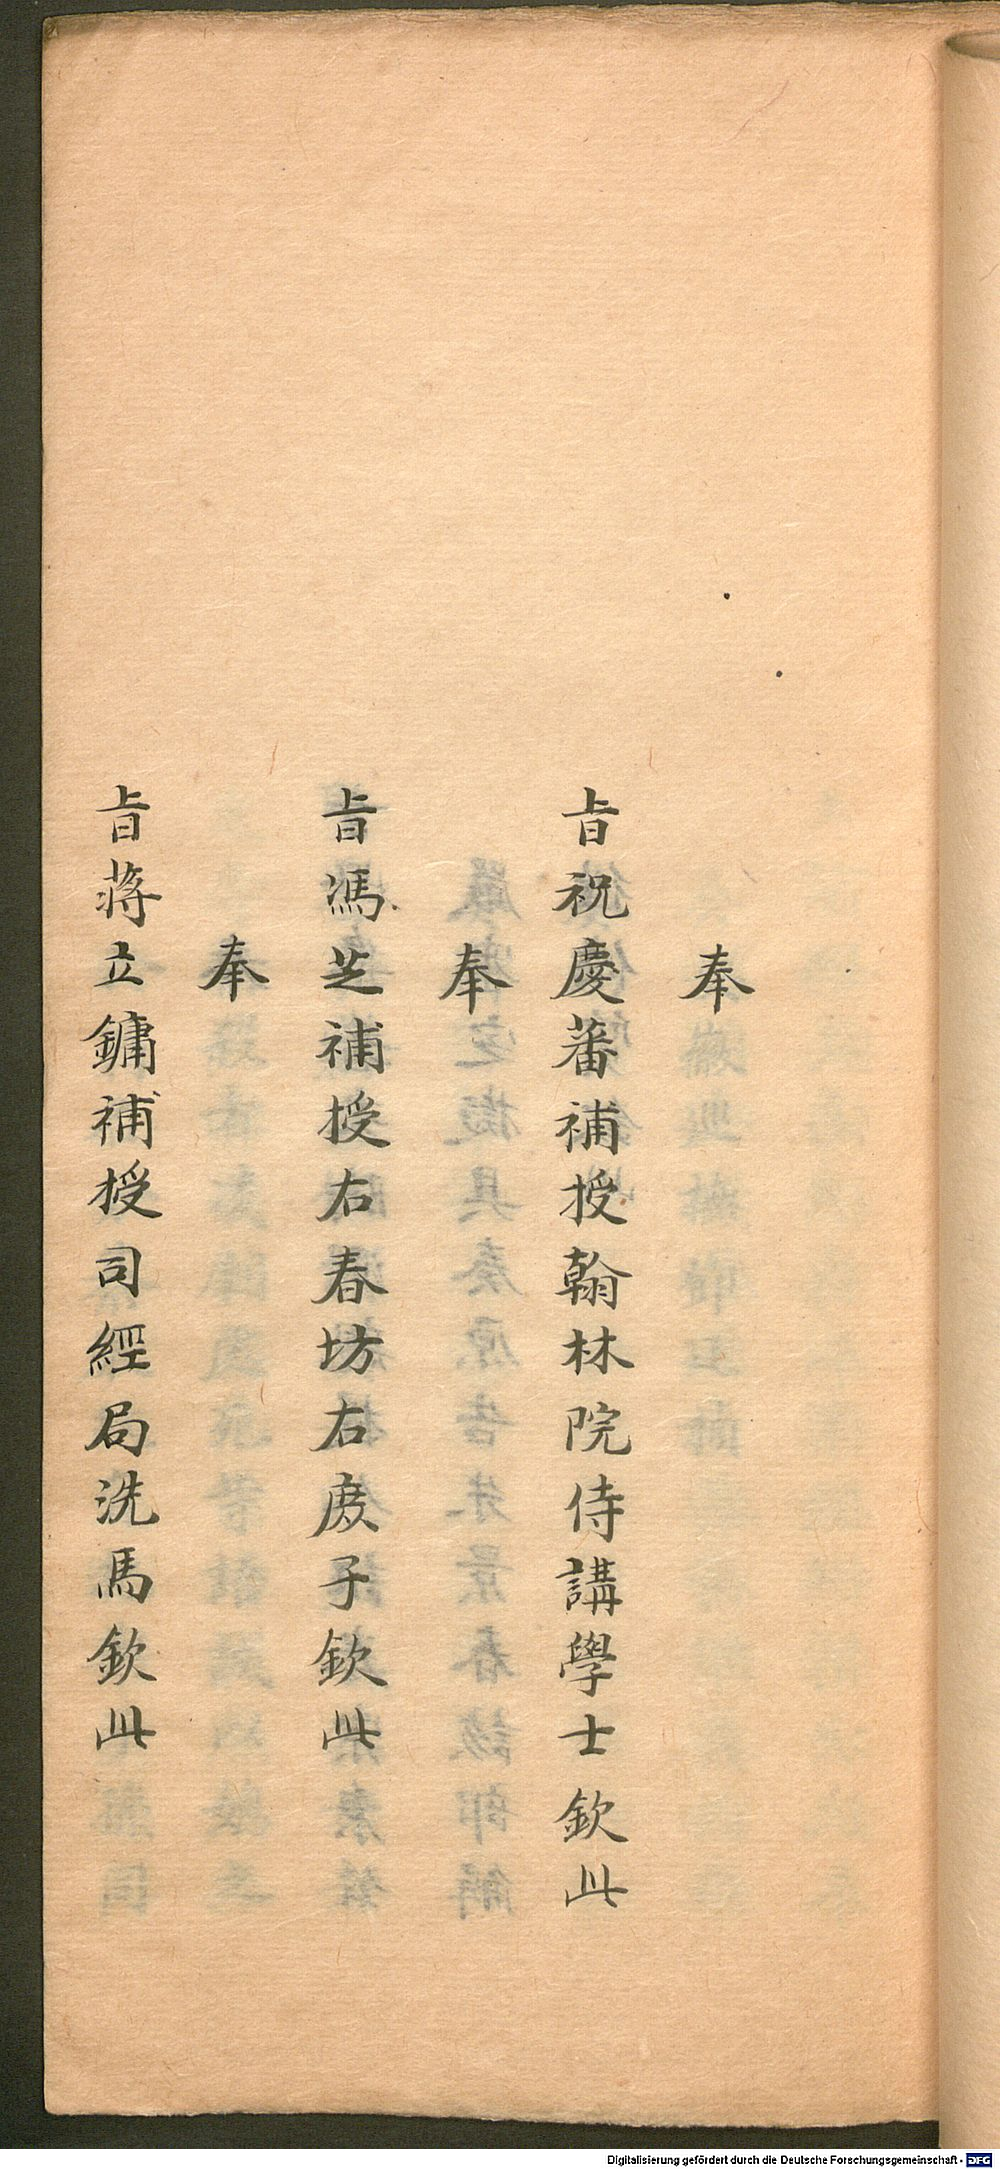 奉
旨祝慶蕃補授翰林院侍講學士欽此
奉
旨馮芝補授右春坊右庻子欽此
奉
旨蔣立鏞補授司經局洗馬欽此
Digitalisierung gefördert durch die Deutsche Forschungsgemeinschaft - DFG